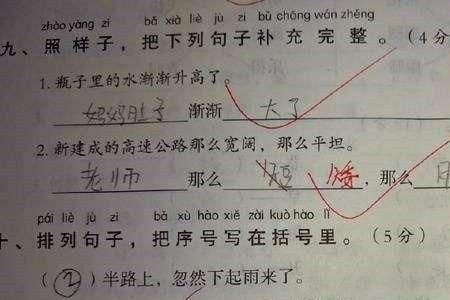 zhào yàng zi bǎ xià liè jù zi bǔ chōng wán zhěng
九、照样子，把下列句子补充完整。（4分
1. 瓶子里的水渐渐升高了。
妈妈肚子 渐渐 大了
2. 新建成的高速公路那么宽阔，那么平坦。
老师 那么 矮，那么
pái liè jù zi bǎ xù hào xiě zài kuò hào lǐ
十、排列句子，把序号写在括号里。（5分）
（②）半路上，忽然下起雨来了。